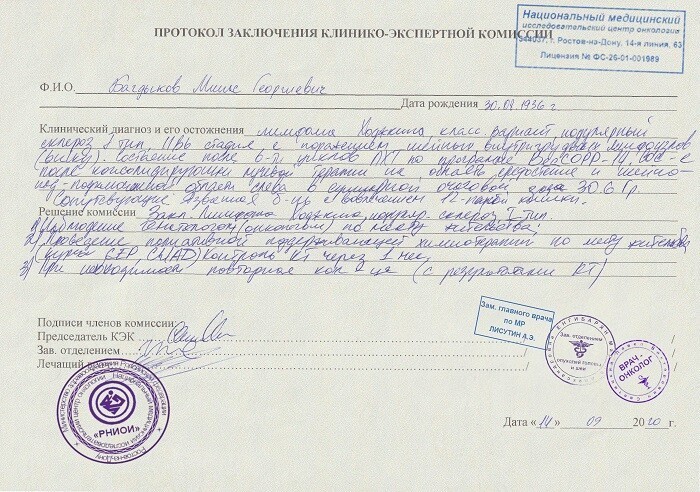 ПРОТОКОЛ ЗАКЛЮЧЕНИЯ КЛИНИКО-ЭКСПЕРТНОЙ КОМИССИИ
Национальный медицинский
исследовательский центр онкологии
344037, г. Ростов-на-Дону, 14-я линия, 63
Лицензия № ФС-26-01-001989
Ф.И.О. Багдыков Минас Георгиевич
Дата рождения 30.09.1936 г
Клинический диагноз и его осложнения лимфома Ходжкина класс. вариант нодулярный
склероз тип, IIВб стадия с поражением шейных, внутригрудных лимфоузлов
Состояние после 6-ти циклов ПХТ по программе
после консолидирующей лучевой терапии на область средостения и шейно-
область слева в суммарной очаговой дозе 30.6 Гр.
Сопутствующие Язвенная б-нь с вовлечением 12-перной кишки.
Решение комиссии Закл. Лимфома Ходжкина, нодуляр. склероз I-тип.
1) Наблюдение гематолога (онколога) по месту жительства;
2) Проведение полиативной поддерживающей химиотерапии по месту жительства
(курсы CEP, ) Контроль КТ через 1 мес.
3) При необходимости повторная кон-ция (с результатами КТ)
Подписи членов комиссии:
Председатель КЭК
Зав. отделением
Лечащий
Зам. главного врача
по МР
ЛИСУТИН А.Э.
Зав. отделением
опухолей головы
и шеи
ВРАЧ-
ОНКОЛОГ
«РНИОИ»
Дата «14» 09 2020 г.